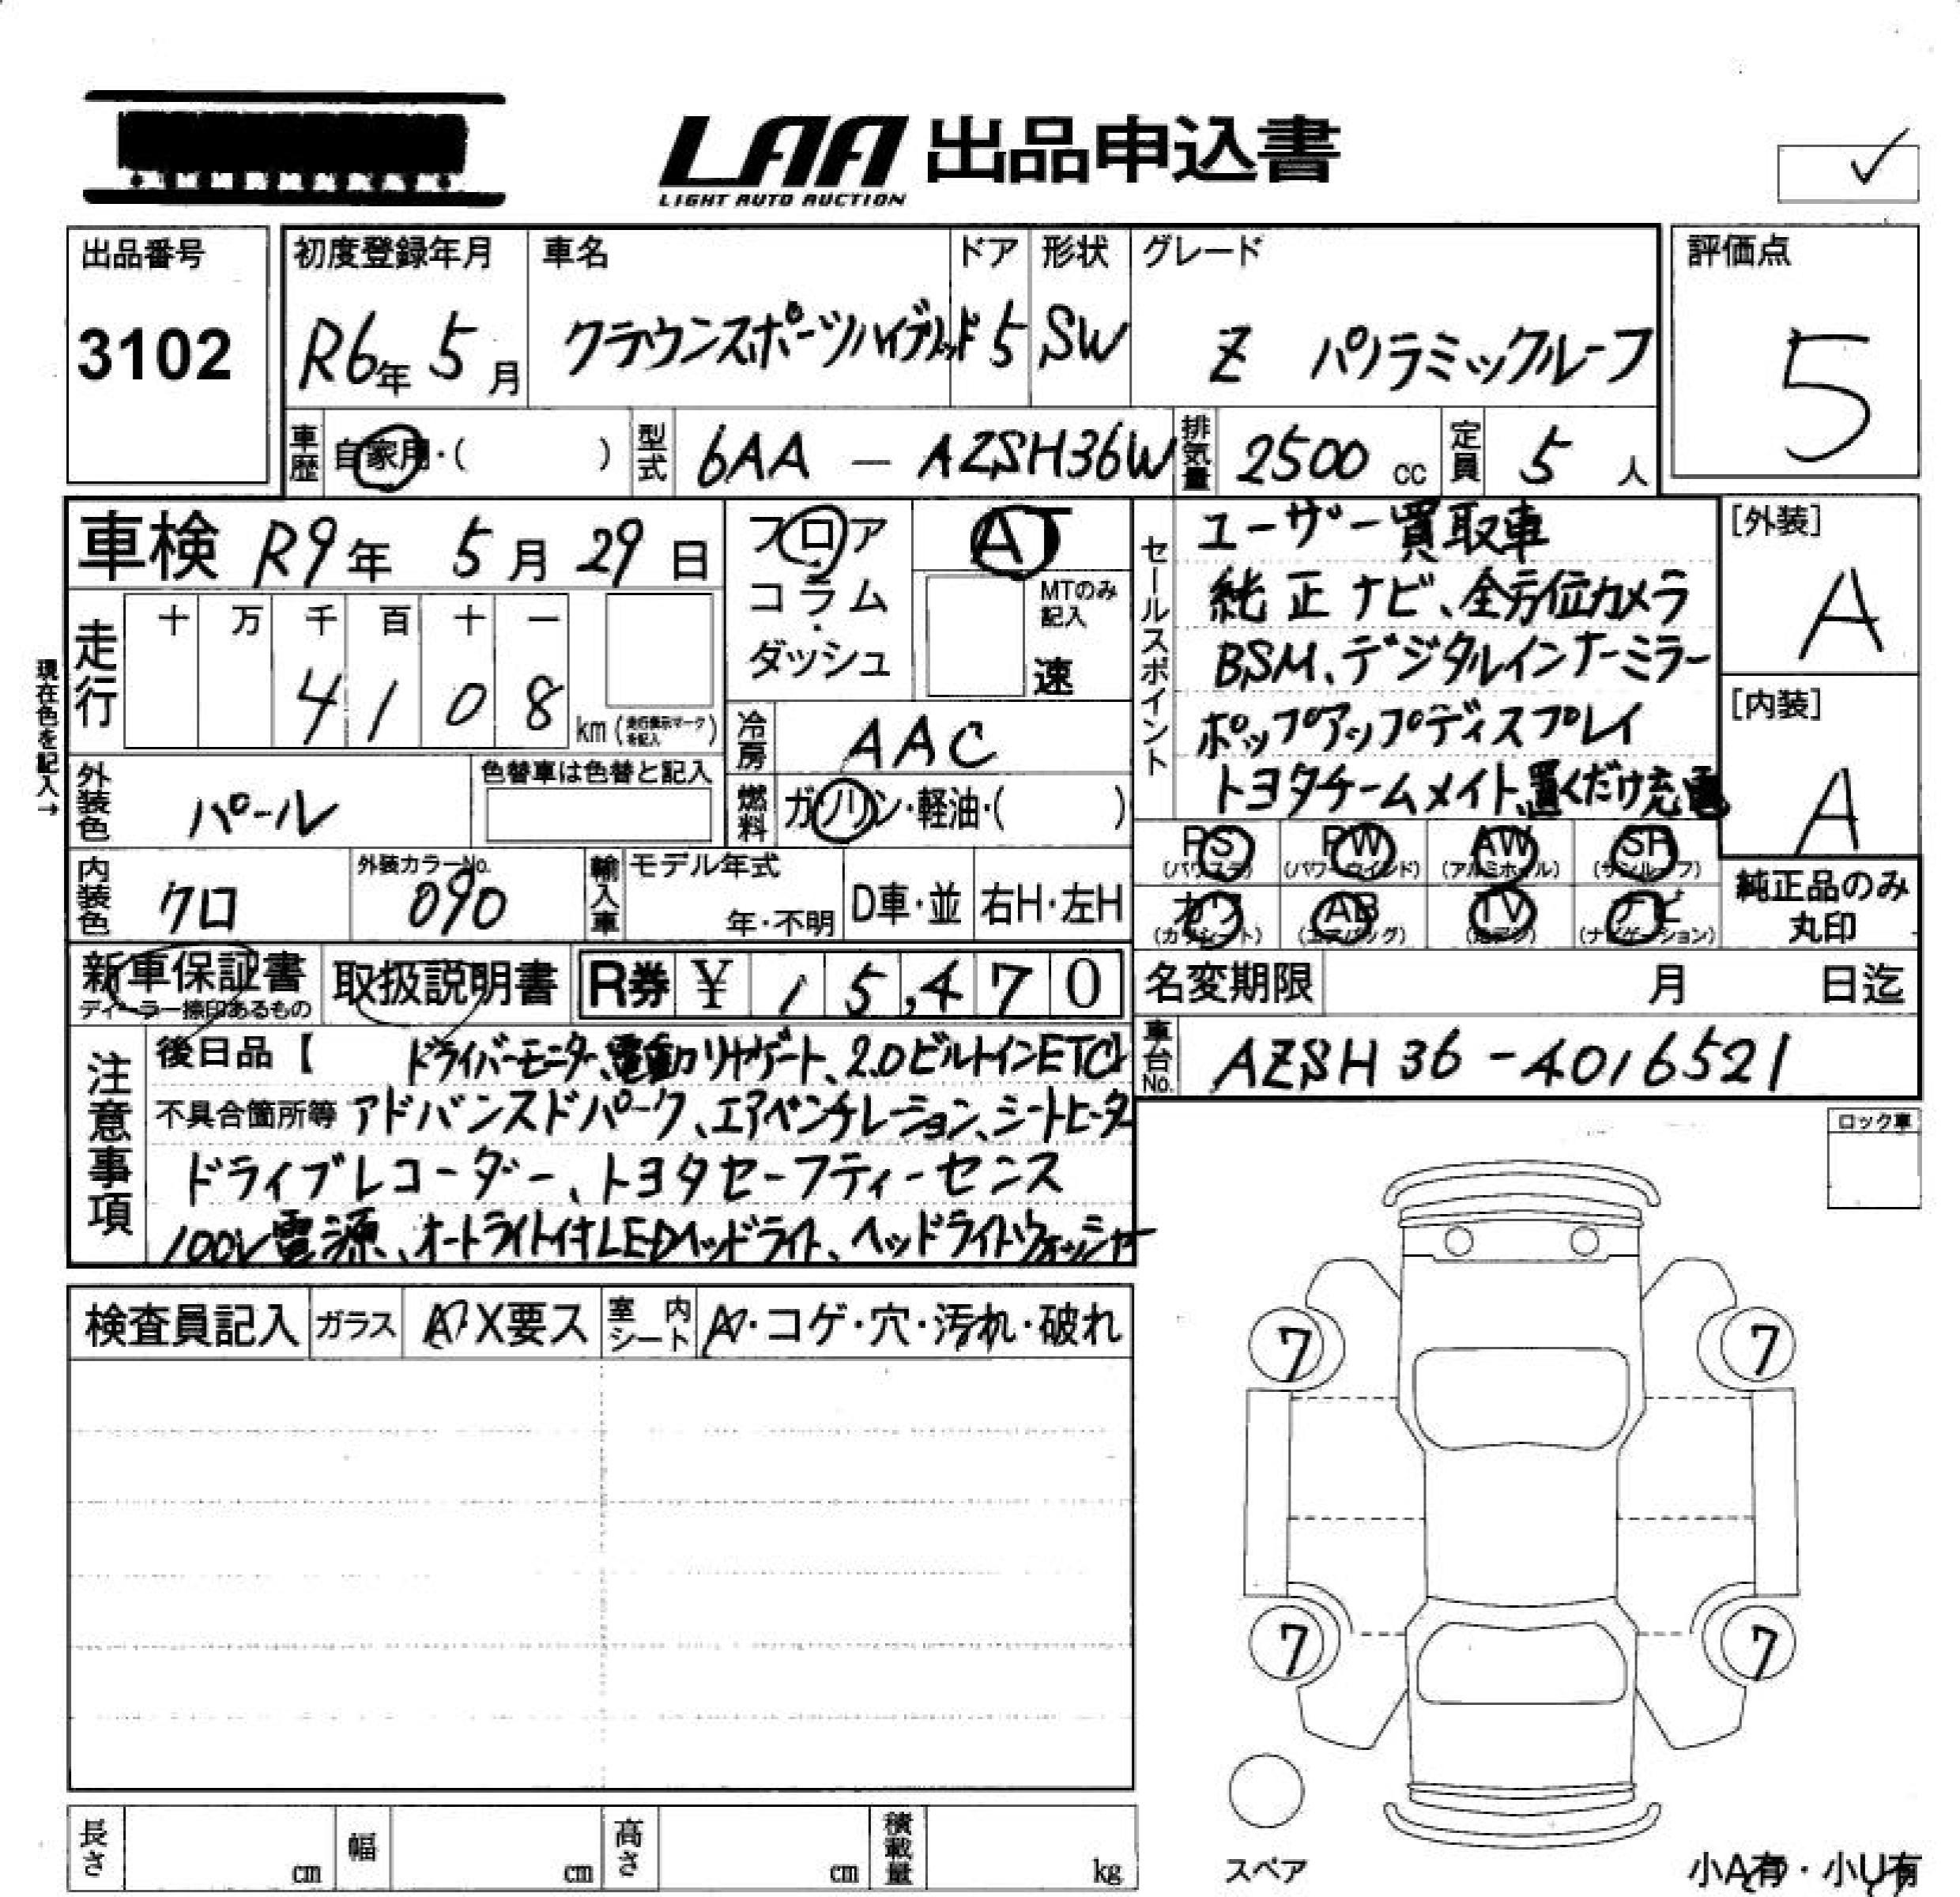 LAA 出品申込書
LIGHT AUTO AUCTION
出品番号
3102
初度登録年月
R6年 5月
車名
クラウンスポーツハイブリッド
ドア
5
形状
SW
グレード
Z パノラミックルーフ
評価点
5
車歴 自家用・( )
型式 6AA - AZSH36W
排気量 2500 cc
定員 5 人
車検 R9年 5月 29日
フロア・コラム・ダッシュ
AT
MTのみ記入
速
現在色を記入→
走行
十 万 千 百 十 一
4 1 0 8
km (走行表示マークを記入)
冷房 AAC
外装色 パール
色替車は色替と記入
燃料 ガソリン・軽油・( )
内装色 クロ
外装カラーNo.
090
輸入車
モデル年式
年・不明
D車・並
右H・左H
セールスポイント
ユーザー買取車
純正ナビ、全方位カメラ
BSM、デジタルインナーミラー
ポップアップディスプレイ
トヨタチームメイト、置くだけ充電
[外装]
A
[内装]
A
PS (パワステ)
PW (パワーウインド)
AW (アルミホイル)
SR (サンルーフ)
カワ (カワシート)
AB (エアバッグ)
TV (地デジ)
ナビ (ナビゲーション)
純正品のみ
丸印
新車保証書
ディーラー捺印あるもの
取扱説明書
R券 ¥ 15,470
名変期限 月 日迄
車台No. AZSH36-4016521
注意事項
後日品【 ドライバーモニター、電動リヤゲート、2.0ビルトインETC】
不具合箇所等 アドバンスドパーク、エアベンチレーション、シートヒーター
ドライブレコーダー、トヨタセーフティーセンス
100V電源、オートライト付LEDヘッドライト、ヘッドライトウォッシャー
ロック車
検査員記入
ガラス A・X要ス
室内シート A・コゲ・穴・汚れ・破れ
7 7
7 7
スペア
小A有・小U有
長さ cm
幅 cm
高さ cm
積載量 kg